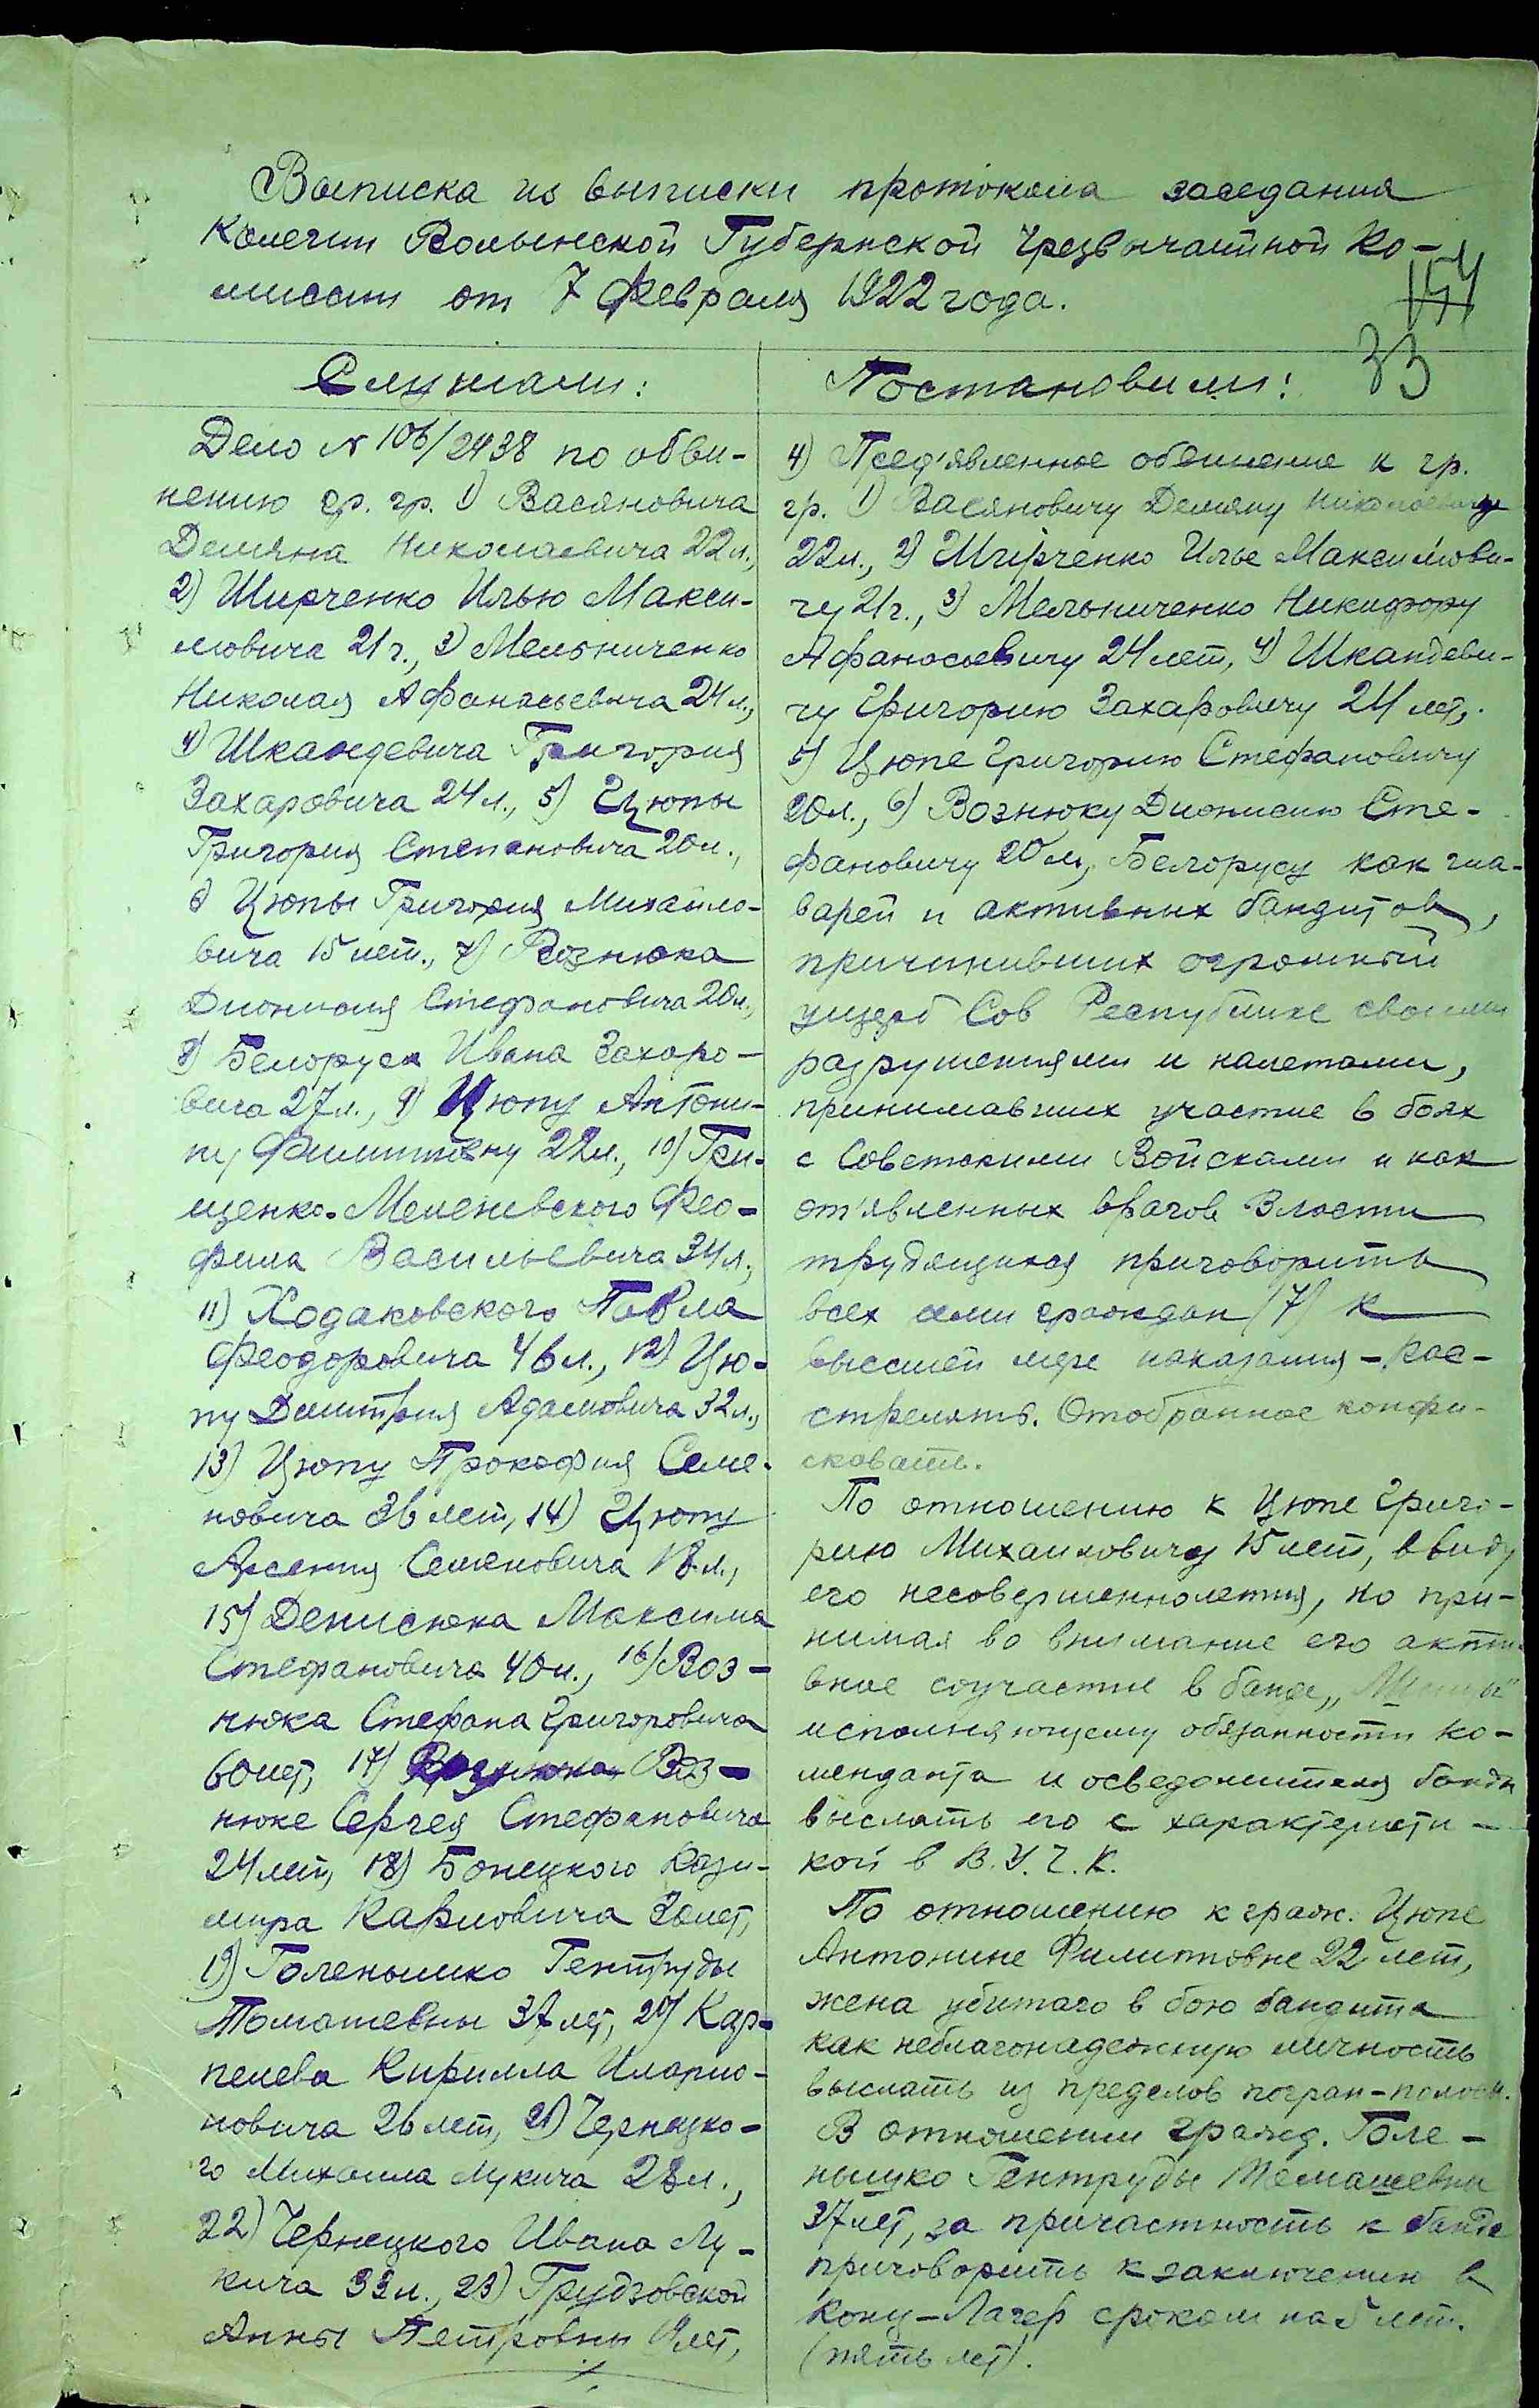 Выписка из выписки протокола заседания
Колегии Волынской Губернской Чрезвычайной Ко-
миссии от 7 Февраля 1922 года.
154
33
Слушали:
Дело № 106/2438 по обви-
нению гр. гр. 1) Васяновича
Демяна Николаевича 22 л.,
2) Ширченко Илью Макси-
мовича 21 г., 3) Мельниченко
Николая Афанасьевича 24 л.,
4) Шкандевича Григория
Захаровича 24 л., 5) Цюпы
Григория Степановича 20 л.,
6) Цюпы Григория Михайло-
вича 15 лет., 7) Вознюка
Дионисия Стефановича 20 л.,
8) Белоруса Ивана Захаро-
вича 27 л., 9) Цюпу Антони-
ну Филипповну 22 л., 10) Гри-
щенко-Меленевского Фео-
фила Васильевича 34 л.,
11) Ходаковского Павла
Феодоровича 46 л., 12) Цю-
пу Дмитрия Адамовича 32 л.,
13) Цюпу Прокофия Семе-
новича 36 лет, 14) Цюпу
Арсения Семеновича 18 л.,
15) Денисюка Максима
Стефановича 40 л., 16) Воз-
нюка Стефана Григоровича
60 лет, 17) Воз-
нюке Сергея Стефановича
24 лет, 18) Бонецкого Кази-
мира Карловича 30 лет,
19) Голенышко Гентруды
Томашевны 37 лет, 20) Кар-
пелева Кирилла Иларио-
новича 26 лет, 21) Чернецко-
го Михаила Лукича 28 л.,
22) Чернецкого Ивана Лу-
кича 33 л., 23) Грудзовской
Анны Петровны лет,
Постановили:
4) Пред'явленное обвинение к гр.
гр. 1) Васяновичу Демяну Николаевичу
22 л., 2) Ширченко Илье Максимови-
чу 21 г., 3) Мельниченко Никифору
Афанасьевичу 24 лет, 4) Шкандеви-
чу Григорию Захаровичу 24 лет,
5) Цюпе Григорию Стефановичу
20 л., 6) Вознюку Дионисию Сте-
фановичу 20 л., Белорусу как гла-
варей и активных бандитов,
причинивших огромный
ущерб Сов Республике своими
разрушениями и налетами,
принимавших участие в боях
с Советскими Войсками и как
от'явленных врагов Власти
трудящихся приговорить
всех семи граждан (7) к
высшей мере наказания - Рас-
стрелять. Отобранное конфи-
сковать.
По отношению к Цюпе Григо-
рию Михаиловичу 15 лет, ввиду
его несовершеннолетия, но при-
нимая во внимание его акти-
вное соучастие в банде
исполняющему обязанности ко-
менданта и осведомителя банды
выслать его с характеристи-
кой в В.У.Ч.К.
По отношению к граж. Цюпе
Антонине Филипповне 22 лет,
жена убитаго в бою бандита
как неблагонадежную личность
выслать из пределов погран-полосы.
В отношении гражд. Голе-
нышко Гентруды Томашевны
37 лет, за причастность к банде
приговорить к заключению в
Конц-Лагер сроком на 5 лет.
(пять лет).